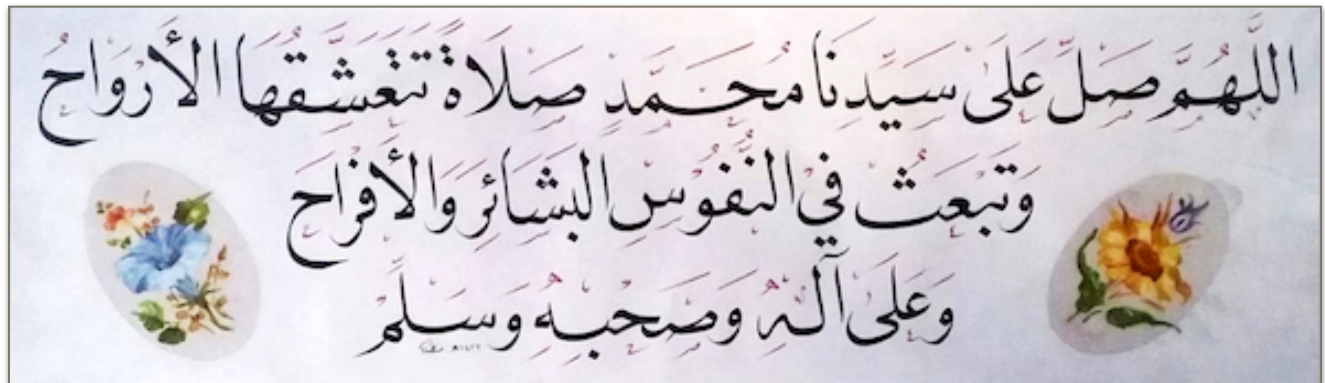 اللَّهُمَّ صَلِّ عَلَىٰ سَيِّدِنَا مُحَمَّدٍ صَلَاةً تَتَعَشَّقُهَا الأَرْوَاحُ
وَتَبْعَثُ فِي النُّفُوسِ البَشَائِرَ وَالأَفْرَاحَ
وَعَلَىٰ آلِهِ وَصَحْبِهِ وَسَلِّمْ